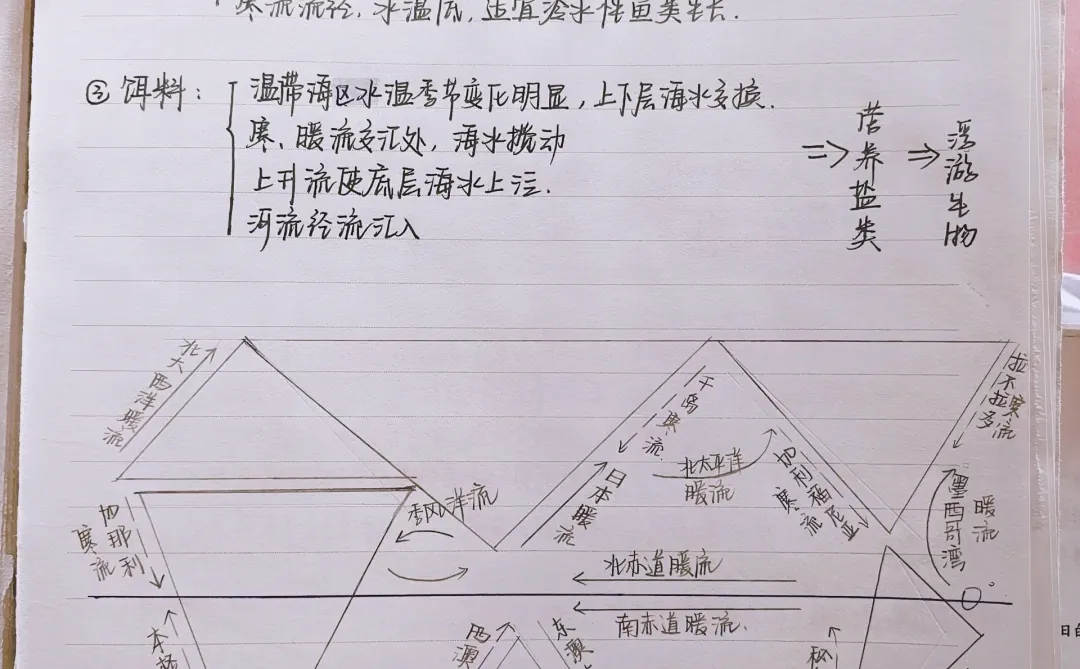 寒流流经，水温低，适宜冷水性鱼类生长．
③饵料：
温带海区水温季节变化明显，上下层海水交换．
寒、暖流交汇处，海水搅动
上升流使底层海水上泛．
河流径流汇入
⇒营养盐类⇒浮游生物
北大西洋暖流
千岛寒流
拉布拉多寒流
北太平洋暖流
日本暖流
加利福尼亚寒流
墨西哥湾暖流
季风洋流
加那利寒流
北赤道暖流
0°
南赤道暖流．
本格
西澳
东澳